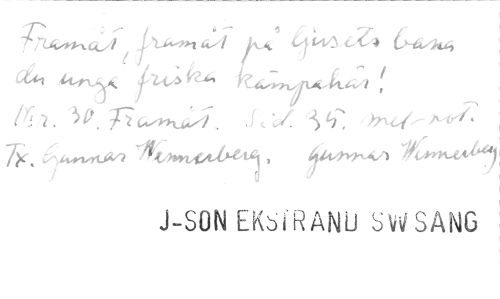 Framåt, framåt på ljusets bana
du unga friska kämpahär!
Nr. 30. Framåt. Sid. 35. mel-not.
Tx. Gunnar Wennerberg. Gunnar Wennerberg
J-SON EKSTRAND SW SANG